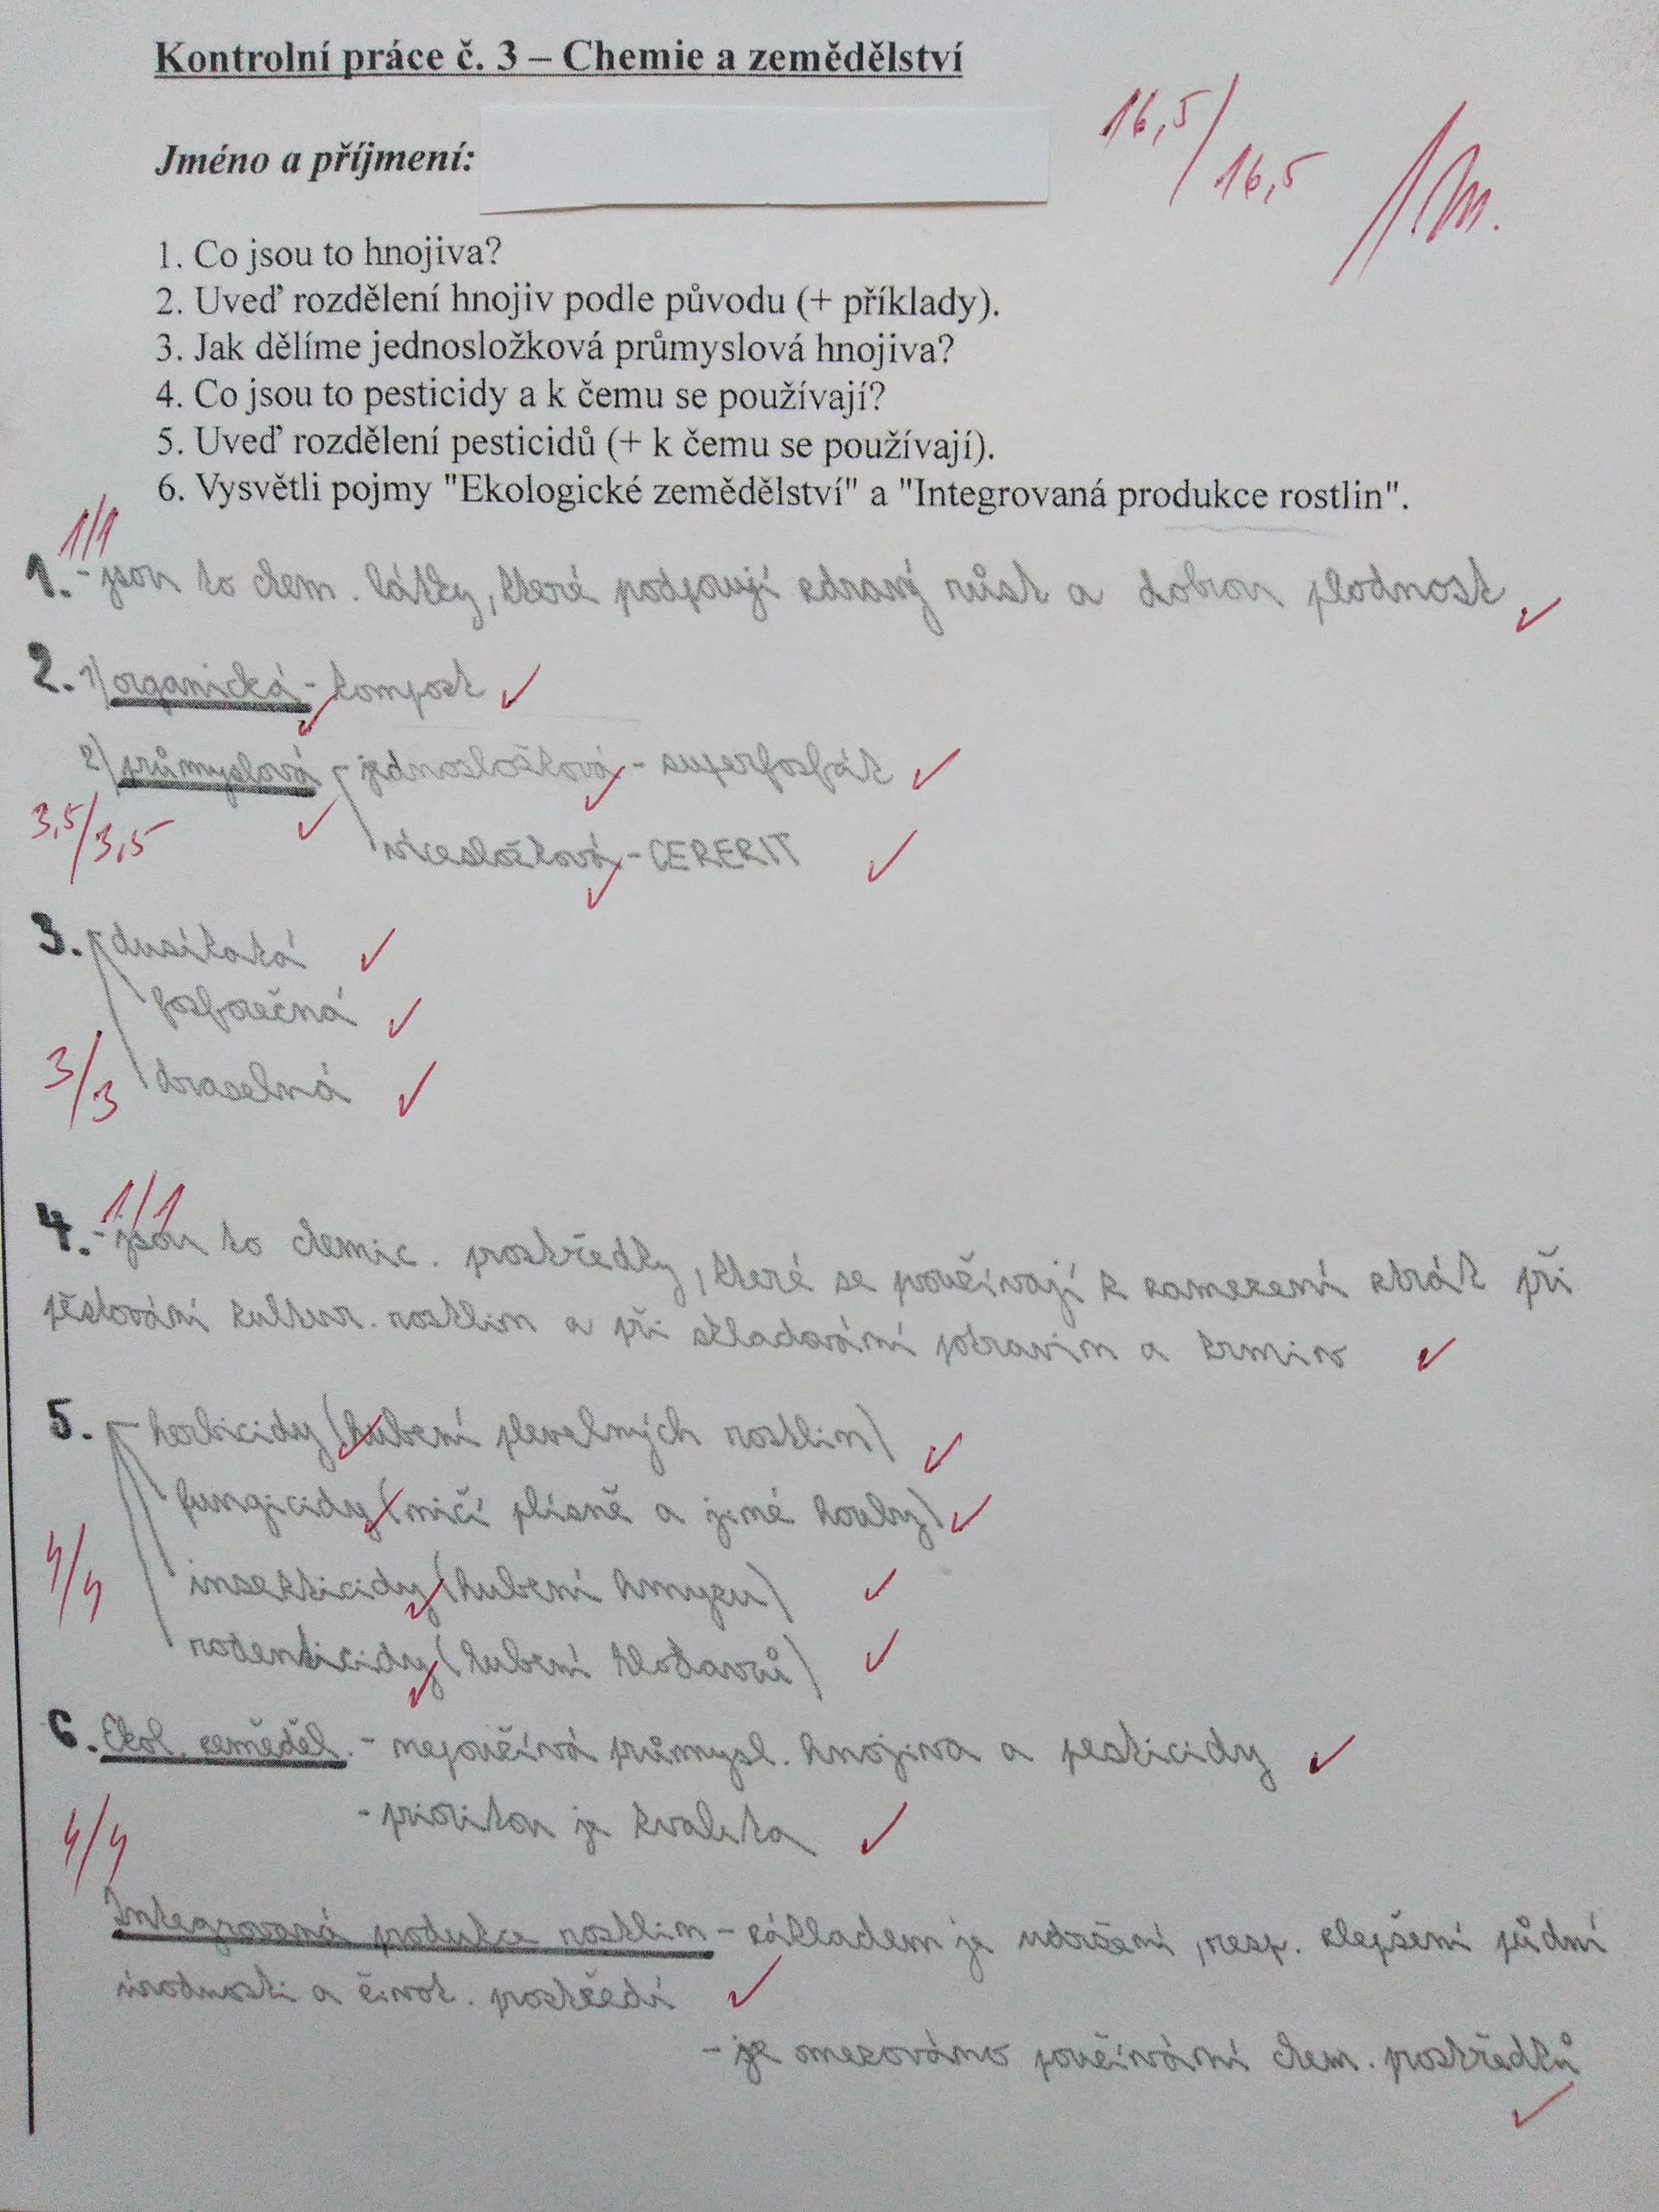 Kontrolní práce č. 3 – Chemie a zemědělství
16,5/16,5
Jméno a příjmení:
1. Co jsou to hnojiva?
2. Uveď rozdělení hnojiv podle původu (+ příklady).
3. Jak dělíme jednosložková průmyslová hnojiva?
4. Co jsou to pesticidy a k čemu se používají?
5. Uveď rozdělení pesticidů (+ k čemu se používají).
6. Vysvětli pojmy "Ekologické zemědělství" a "Integrovaná produkce rostlin".
1/1
1. - jsou to chem. látky, které podporují zdravý růst a dobrou plodnost
2. 1) organická - kompost
2) průmyslová - jednosložková - superfosfát
3,5/3,5
vícesložková - CERERIT
3. dusíkatá
fosforečná
3/3
draselná
1/1
4. - jsou to chemic. prostředky, které se používají k zamezení ztrát při
pěstování kultur. rostlin a při skladování potravin a krmiv
5. - herbicidy (hubení plevelných rostlin)
fungicidy (ničí plísně a jiné houby)
4/4
insekticidy (hubení hmyzu)
rodenticidy (hubení hlodavců)
6. Ekol. zeměděl. - nepoužívá průmysl. hnojiva a pesticidy
- prioritou je kvalita
4/4
Integrovaná produkce rostlin - základem je udržení, resp. zlepšení půdní
úrodnosti a život. prostředí
- je omezováno používání chem. prostředků